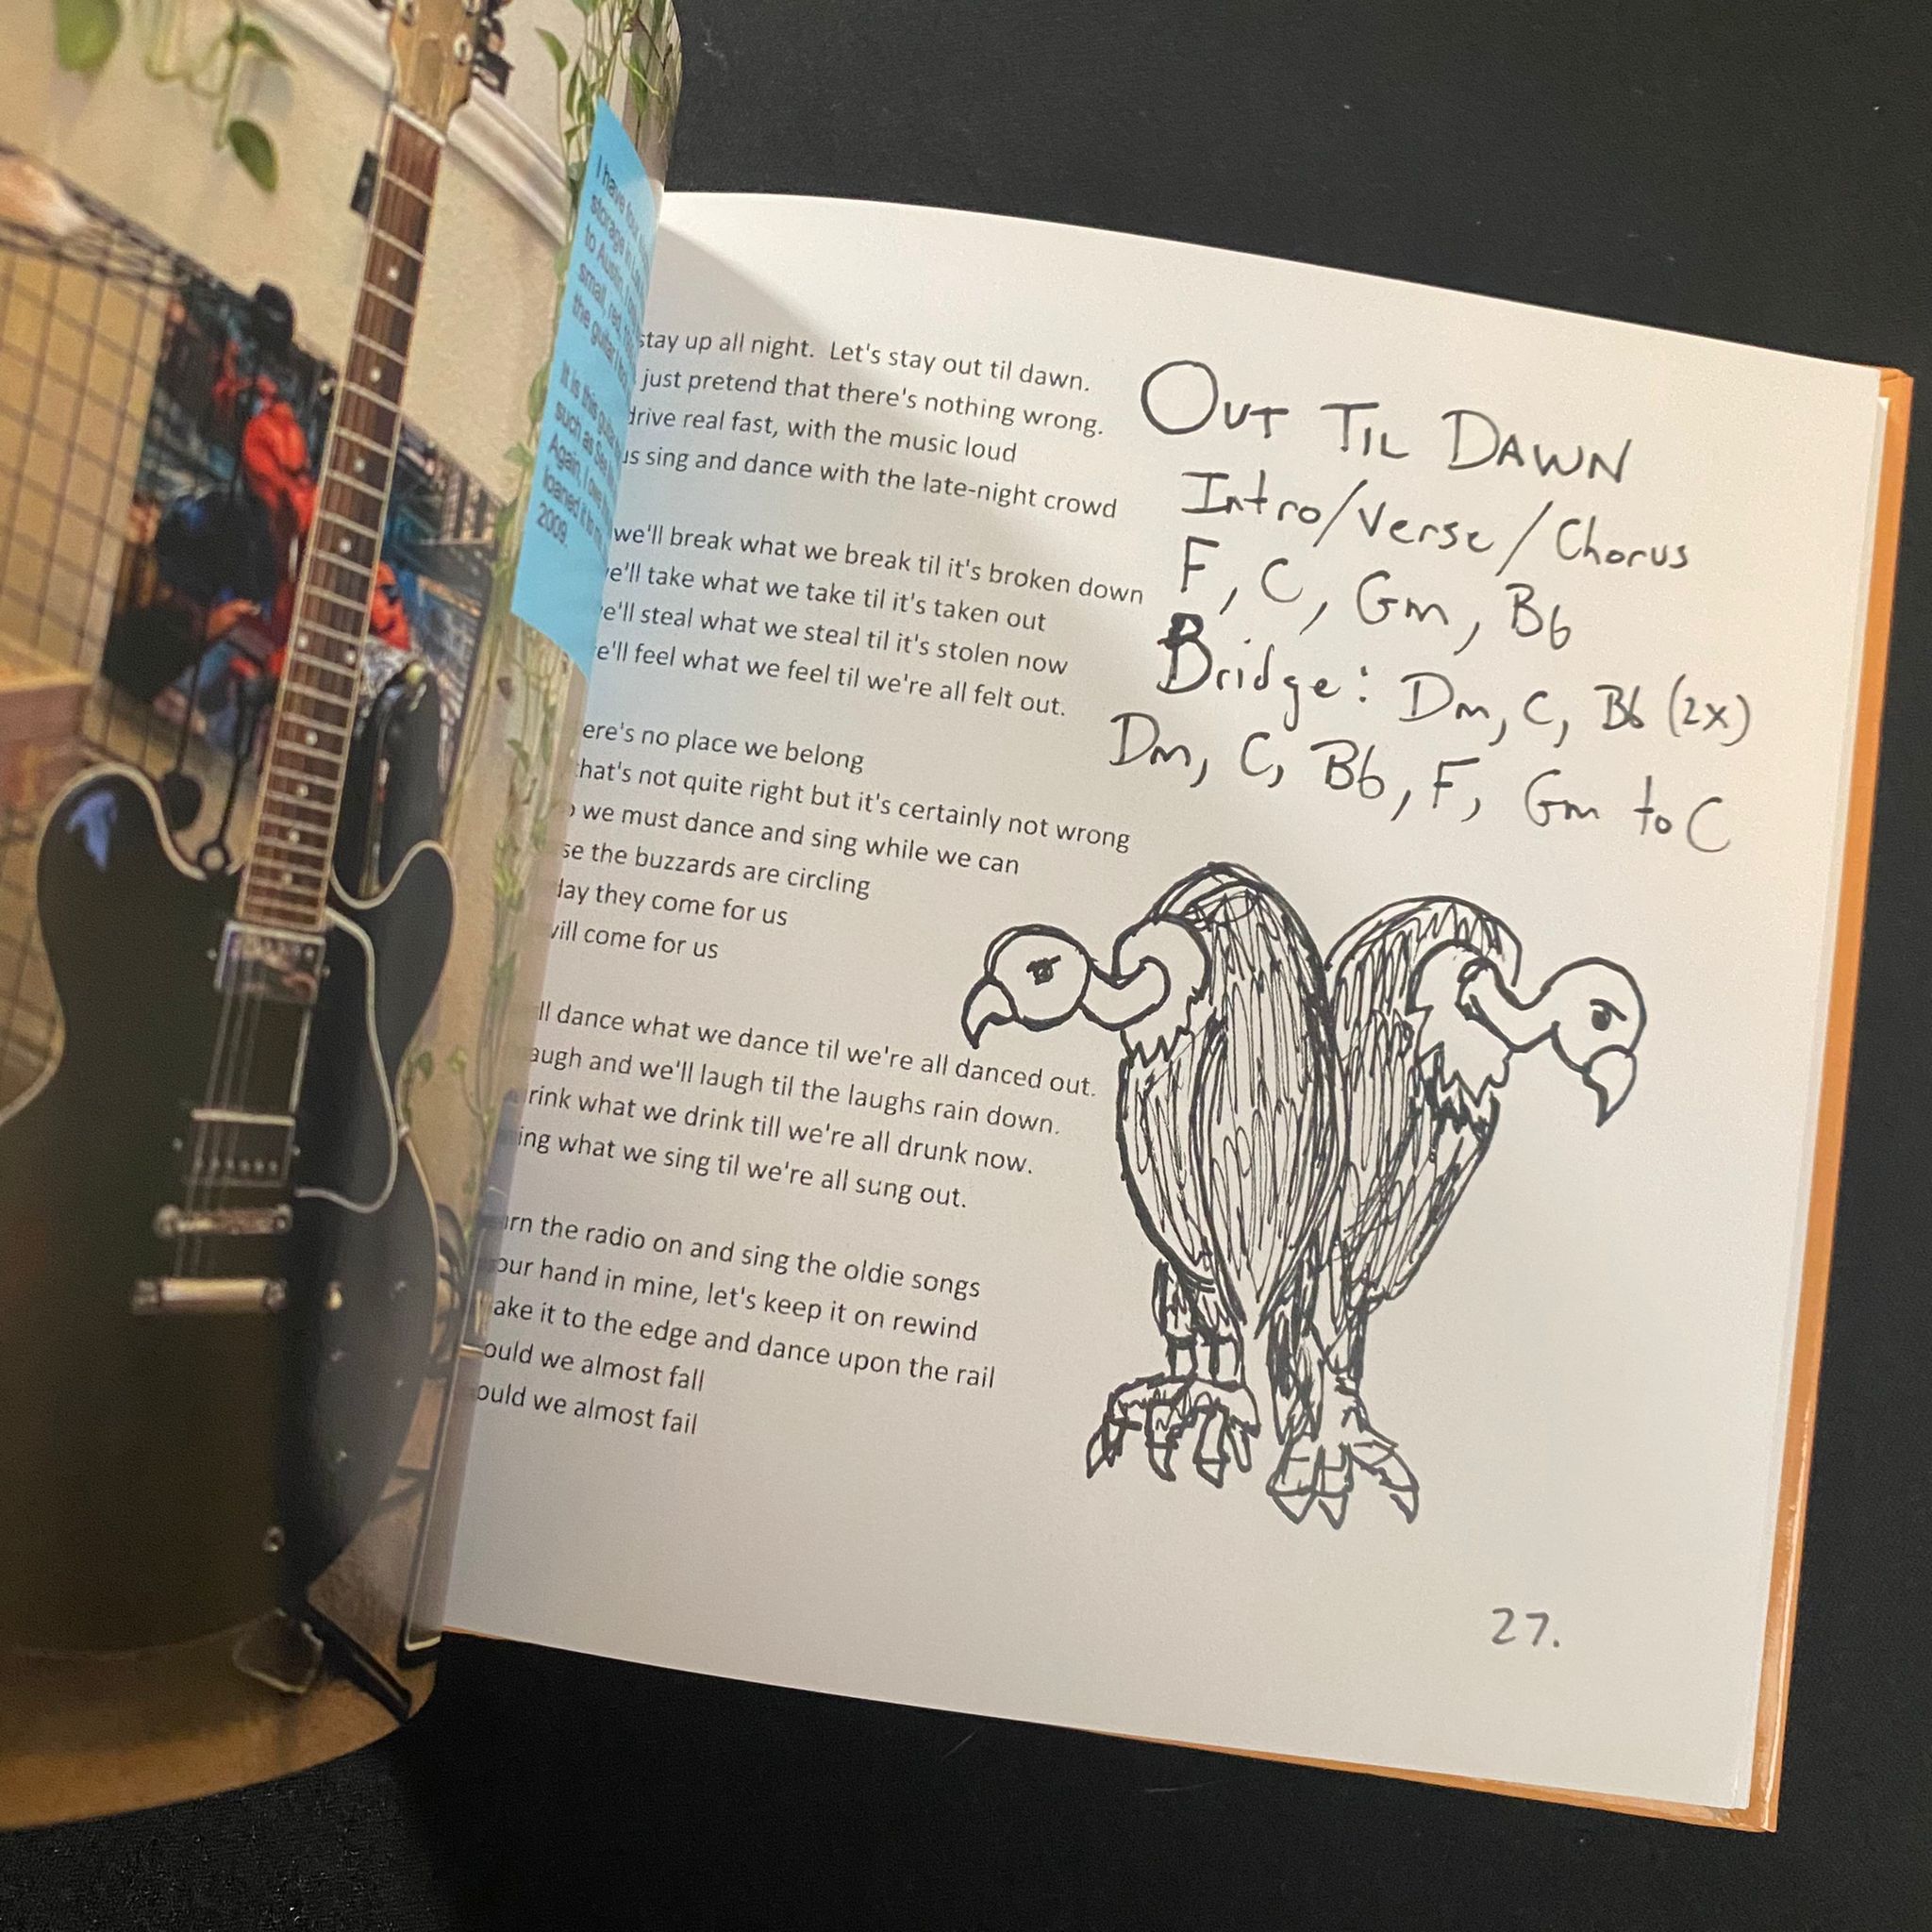 I have four
storage in
to Austin. I
small, red,
the guitar I
It is this guitar
such as
Again, I owe
loaned it to
2009.
stay up all night.  Let's stay out til dawn.
just pretend that there's nothing wrong.
drive real fast, with the music loud
us sing and dance with the late-night crowd
we'll break what we break til it's broken down
we'll take what we take til it's taken out
we'll steal what we steal til it's stolen now
we'll feel what we feel til we're all felt out.
ere's no place we belong
that's not quite right but it's certainly not wrong
we must dance and sing while we can
se the buzzards are circling
day they come for us
will come for us
ll dance what we dance til we're all danced out.
augh and we'll laugh til the laughs rain down.
rink what we drink till we're all drunk now.
ing what we sing til we're all sung out.
urn the radio on and sing the oldie songs
our hand in mine, let's keep it on rewind
ake it to the edge and dance upon the rail
ould we almost fall
ould we almost fail
OUT TIL DAWN
Intro/Verse/Chorus
F, C, Gm, Bb
Bridge: Dm, C, Bb (2x)
Dm, C, Bb, F, Gm to C
27.